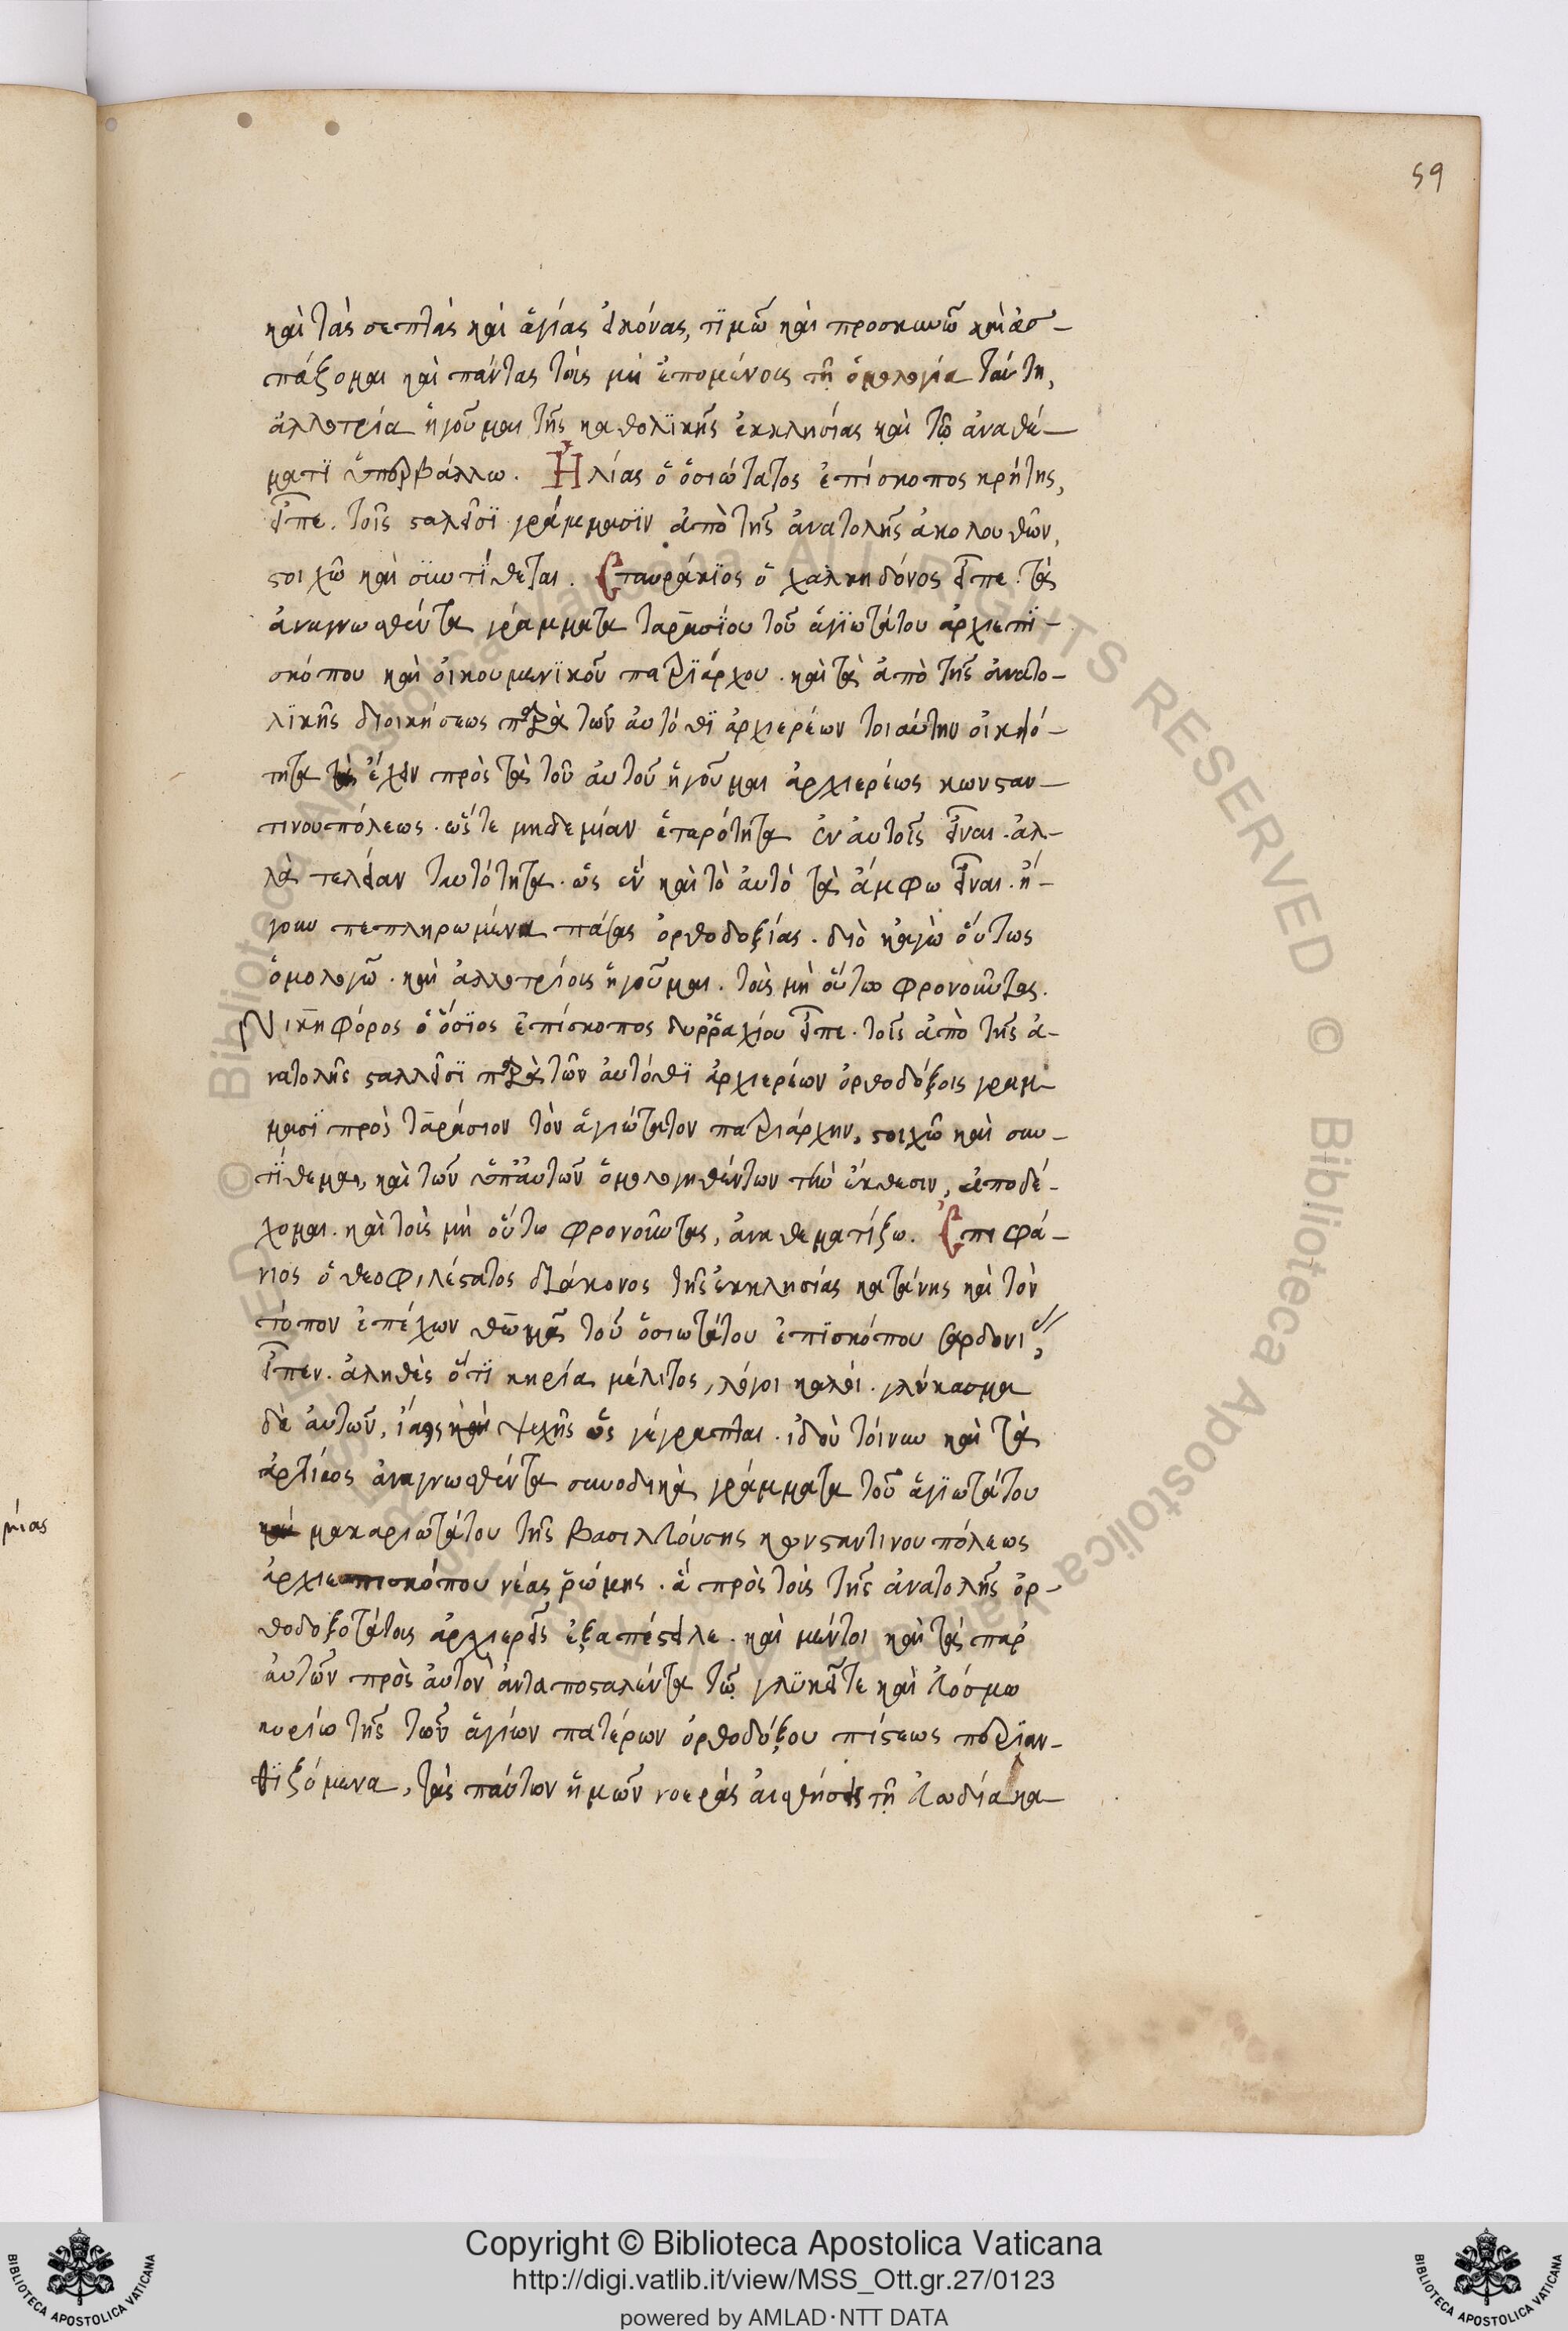 59
καὶ τὰς σεπτὰς καὶ ἁγίας εἰκόνας, τϊμῶ καὶ προσκυνῶ καὶ ἀσ-
πάζομαι καὶ πάντας τοὺς μὴ ἑπομένους τῇ ὁμολογία ταύτη,
ἀλλοτρία ἡγοῦμαι τῆς καθολϊκῆς ἐκκλησίας καὶ τῷ ἀναθέ-
ματϊ ὑποβάλλω. Ἠλίας ὁ ὁσιώτατος ἐπίσκοπος κρήτης,
εἶπε. τοῖς σταλεῖσϊ γράμμασϊν ἀπὸ τῆς ἀνατολῆς ἀκολουθῶν,
στοιχῶ καὶ συντϊθεται. Σταυράκϊος ὁ χαλκηδόνος εἶπε. τὰ
ἀναγνωσθέντα γράμματα ταρασϊου τοῦ ἁγϊωτάτου ἀρχιεπϊ-
σκόπου καὶ οἰκουμενϊκοῦ πατριάρχου. καὶ τὰ ἀπὸ τῆς ἀνατο-
λϊκῆς διοικήσεως παρὰ τῶν αὐτόθϊ ἀρχιερέων τοιαύτην οἰκειό-
τητα ἔχειν πρὸς τὰ τοῦ αὐτοῦ ἡγοῦμαι ἀρχιερέως κωνσταν-
τινουπόλεως. ὥστε μηδεμίαν ἑτερότητα ἐν αὐτοῖς εἶναι. ἀλ-
λὰ τελείαν ταυτότητα. ὡς ἓν καὶ τὸ αὐτὸ τὰ ἄμφω εἶναι. ἤ-
γουν πεπληρωμένα πάσης ὀρθοδοξίας. διὸ κἀγὼ οὕτως
ὁμολογῶ. καὶ ἀλλοτρίους ἡγοῦμαι. τοὺς μὴ οὕτω φρονοῦντας.
Νικηφόρος ὁ ὅσϊος ἐπίσκοπος δυρραχίου εἶπε. τοῖς ἀπὸ τῆς ἀ-
νατολῆς σταλλεῖσϊ παρὰ τῶν αὐτόθϊ ἀρχιερέων ὀρθοδόξοις γραμ-
μασϊ πρὸς ταράσιον τὸν ἁγιώτατον πατριάρχην, στοιχῶ καὶ συν-
τϊθεμαι, καὶ τῶν ὑπ' αὐτῶν ὁμολογηθέντων τὴν ἔκθεσιν, ἀποδέ-
χομαι. καὶ τοὺς μὴ οὕτω φρονοῦντας, ἀναθεματίζω. Ἐπιφά-
νιος ὁ θεοφιλέστατος διάκονος τῆς ἐκκλησίας κατάνης καὶ τὸν
τόπον ἐπέχων θωμᾶ τοῦ ὁσιωτάτου ἐπϊσκόπου σαρδονι
εἶπεν. ἀληθὲς ὅτϊ κηρία μέλιτος, λόγοι καλοί. γλύκασμα
δὲ αὐτῶν, ἴασις ψυχῆς ὡς γέγραπται. ἰδοὺ τοίνυν καὶ τὰ
ἀρτίως ἀναγνωσθέντα συνοδικὰ γράμματα τοῦ ἁγϊωτάτου
καὶ μακαριωτάτου τῆς βασιλευούσης κωνσταντινουπόλεως
ἀρχιεπισκόπου νέας ῥώμης. ἃ πρὸς τοὺς τῆς ἀνατολῆς ὀρ-
θοδοξοτάτους ἀρχιερεῖς ἐξαπέστειλε. καὶ μέντοι καὶ τὰ παρ'
αὐτῶν πρὸς αὐτὸν ἀνταποσταλέντα τῷ γλϋκεῖτε καὶ εὐόσμω
κυρίω τῆς τῶν ἁγίων πατέρων ὀρθοδόξου πίστεως περιαν-
θϊζόμενα, τὰς πάντων ἡμῶν νοερὰς αἰσθήσεις τῇ εὐωδία κα-
μίας
Copyright © Biblioteca Apostolica Vaticana
http://digi.vatlib.it/view/MSS_Ott.gr.27/0123
powered by AMLAD·NTT DATA